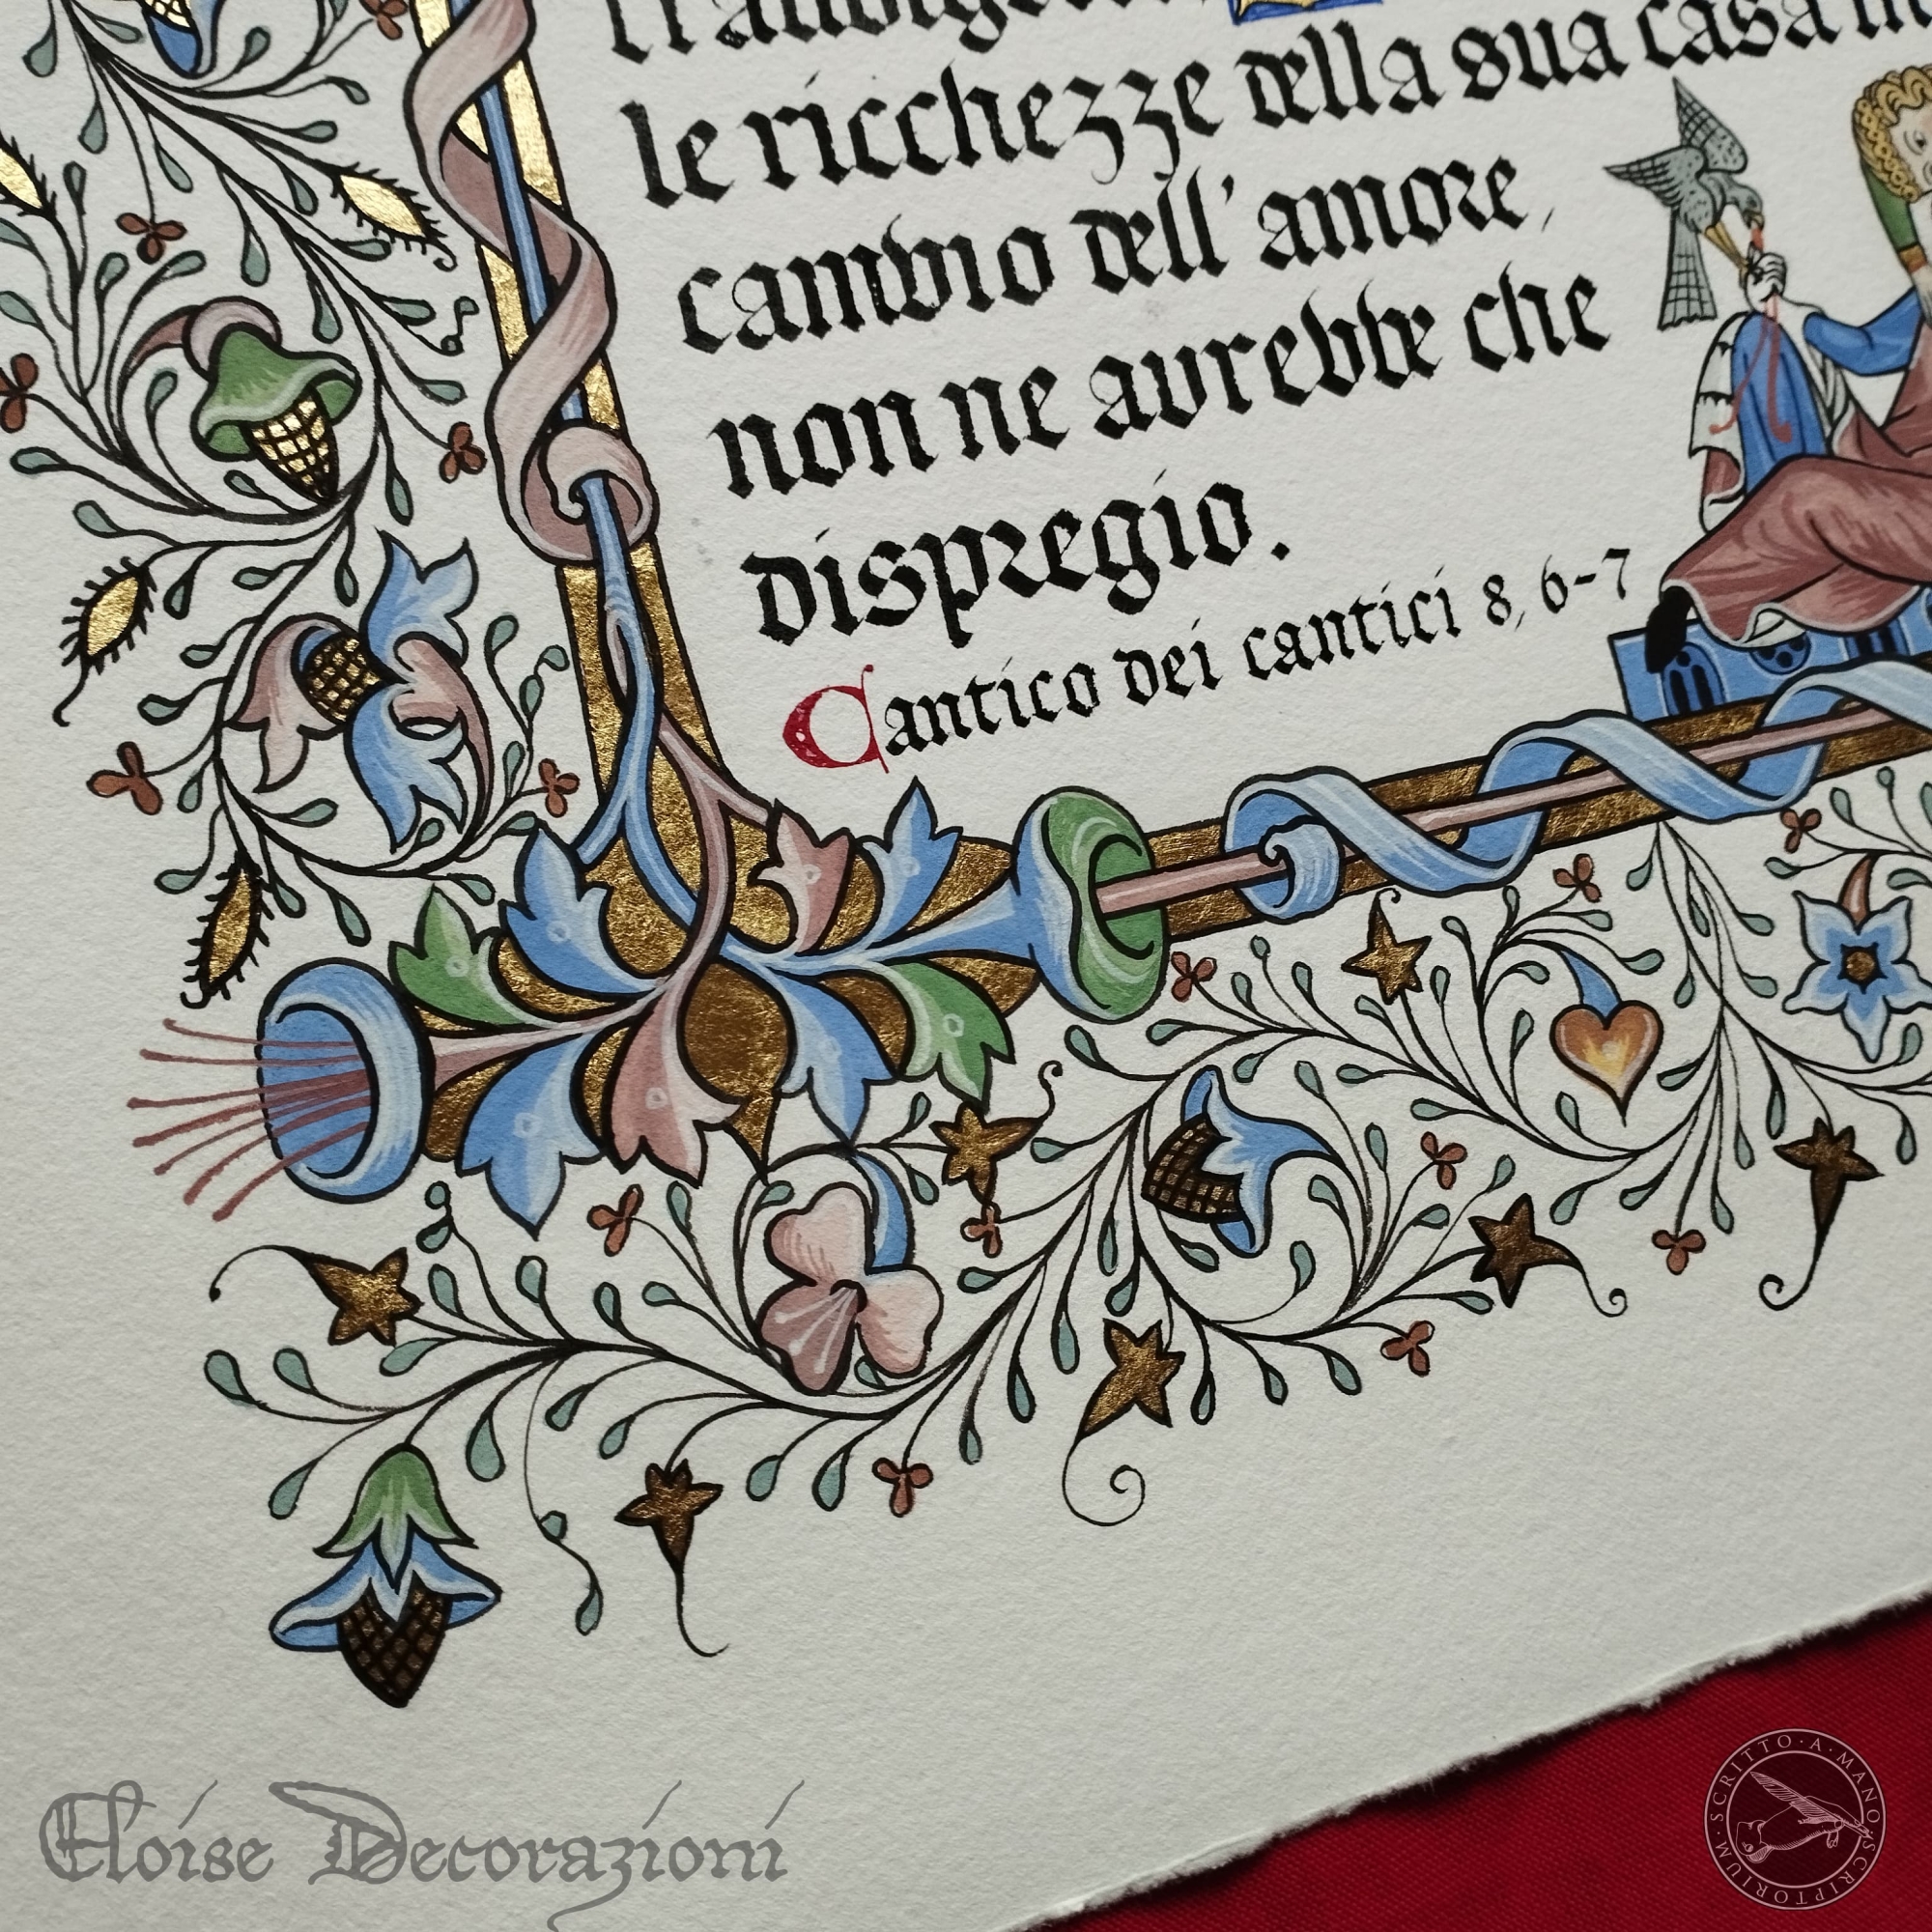 le ricchezze della sua casa
cambio dell'amore,
non ne avrebbe che
dispregio.
Cantico dei cantici 8, 6-7
Eloise Decorazioni
SCRITTO · A · MANO · SCRIPTORIUM ·